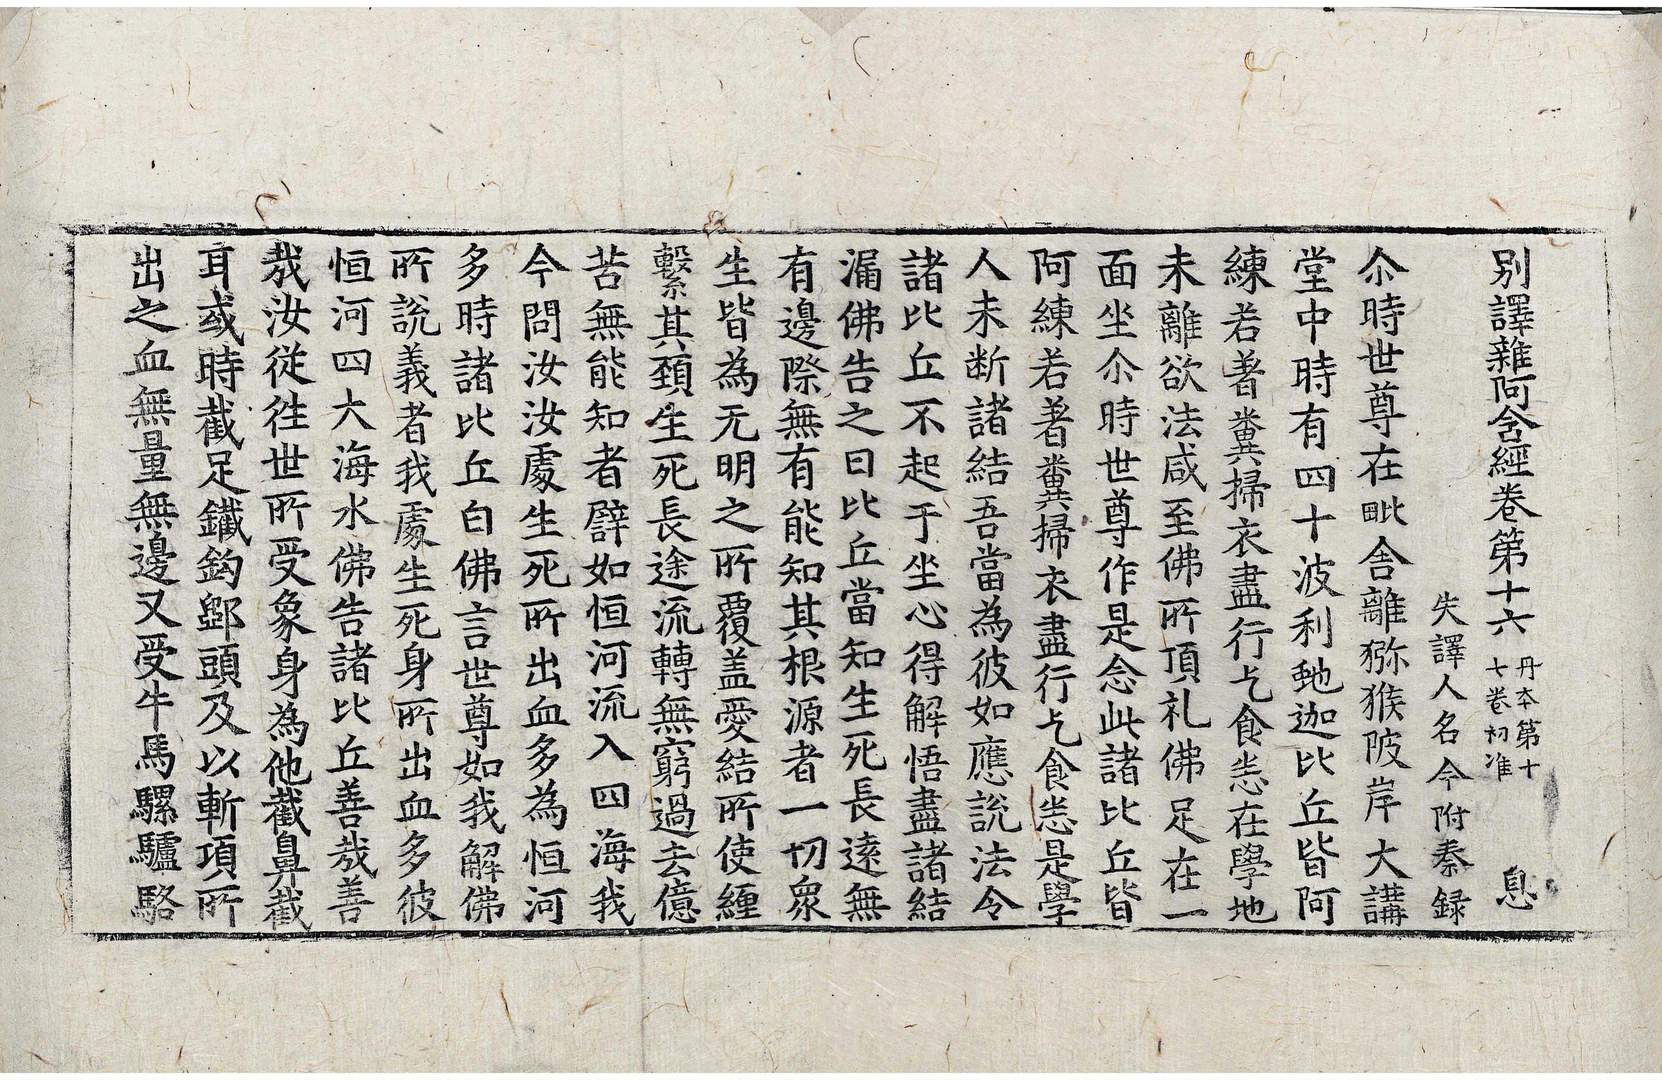 別譯雜阿含經卷第十六 丹本第十七卷初准 息
失譯人名今附秦録
尒時世尊在毗舍離獼猴陂岸大講
堂中時有四十波利虵迦比丘皆阿
練若著糞掃衣盡行乞食悉在學地
未離欲法咸至佛所頂礼佛足在一
面坐尒時世尊作是念此諸比丘皆
阿練若著糞掃衣盡行乞食悉是學
人未断諸結吾當為彼如應說法令
諸比丘不起于坐心得解悟盡諸結
漏佛告之曰比丘當知生死長逺無
有邊際無有能知其根源者一切衆
生皆為无明之所覆盖愛結所使纏
繫其頚生死長途流轉無窮過去億
苦無能知者譬如恒河流入四海我
今問汝汝處生死所出血多為恒河
多時諸比丘白佛言世尊如我解佛
所說義者我處生死身所出血多彼
恒河四大海水佛告諸比丘善哉善
哉汝從徃世所受象身為他截鼻截
耳或時截足鐵鈎𨫼頭及以斬項所
出之血無量無邊又受牛馬騾驢駱